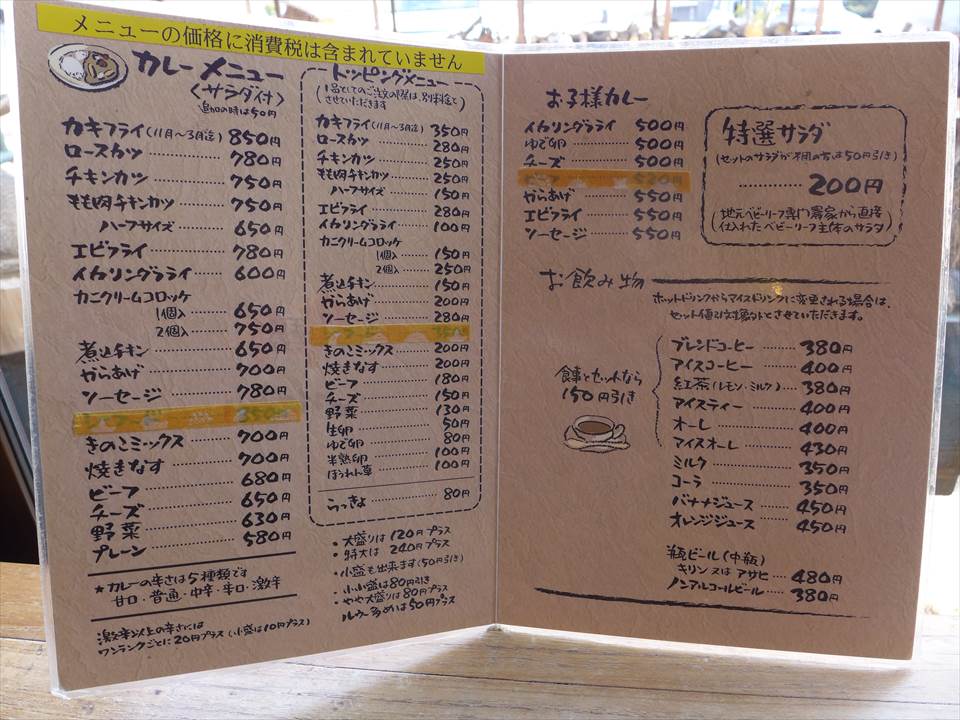 メニューの価格に消費税は含まれていません
カレーメニュー
(サラダ付)
追加の時は50円
カキフライ(11月~3月迄) 850円
ロースカツ 780円
チキンカツ 750円
もも肉チキンカツ 750円
ハーフサイズ 650円
エビフライ 780円
イカリングフライ 600円
カニクリームコロッケ
1個入 650円
2個入 750円
煮込チキン 650円
からあげ 700円
ソーセージ 780円
きのこミックス 700円
焼きなす 700円
ビーフ 680円
チーズ 650円
野菜 630円
プレーン 580円
★カレーの辛さは5種類です
甘口・普通・中辛・辛口・激辛
激辛以上の辛さには
ワンランクごとに20円プラス(小盛は10円プラス)
トッピングメニュー
(1品としてのご注文の際は、別料金とさせていただきます)
カキフライ(11月~3月迄) 350円
ロースカツ 280円
チキンカツ 250円
もも肉チキンカツ 250円
ハーフサイズ 150円
エビフライ 280円
イカリングフライ 100円
カニクリームコロッケ
1個入 150円
2個入 250円
煮込チキン 150円
からあげ 200円
ソーセージ 280円
きのこミックス 200円
焼きなす 200円
ビーフ 180円
チーズ 150円
野菜 130円
生卵 50円
ゆで卵 80円
半熟卵 100円
ほうれん草 100円
らっきょ 80円
・大盛りは120円プラス
・特大は240円プラス
・小盛も出来ます(50円引き)
・小小盛は80円引き
・やや大盛りは80円プラス
ルウー多めは50円プラス
お子様カレー
イカリングフライ 500円
ゆで卵 500円
チーズ 500円
からあげ 550円
エビフライ 550円
ソーセージ 550円
特選サラダ
(セットのサラダが不用の方は50円引き)
200円
(地元ベビーリーフ専門農家から直接
仕入れたベビーリーフ主体のサラダ)
お飲み物
ホットドリンクからアイスドリンクに変更される場合は、
セット値引対象外とさせていただきます。
食事とセットなら
150円引き
ブレンドコーヒー 380円
アイスコーヒー 400円
紅茶(レモン・ミルク) 380円
アイスティー 400円
オーレ 400円
アイスオーレ 430円
ミルク 350円
コーラ 350円
バナナジュース 450円
オレンジジュース 450円
瓶ビール(中瓶)
キリン又はアサヒ 480円
ノンアルコールビール 380円